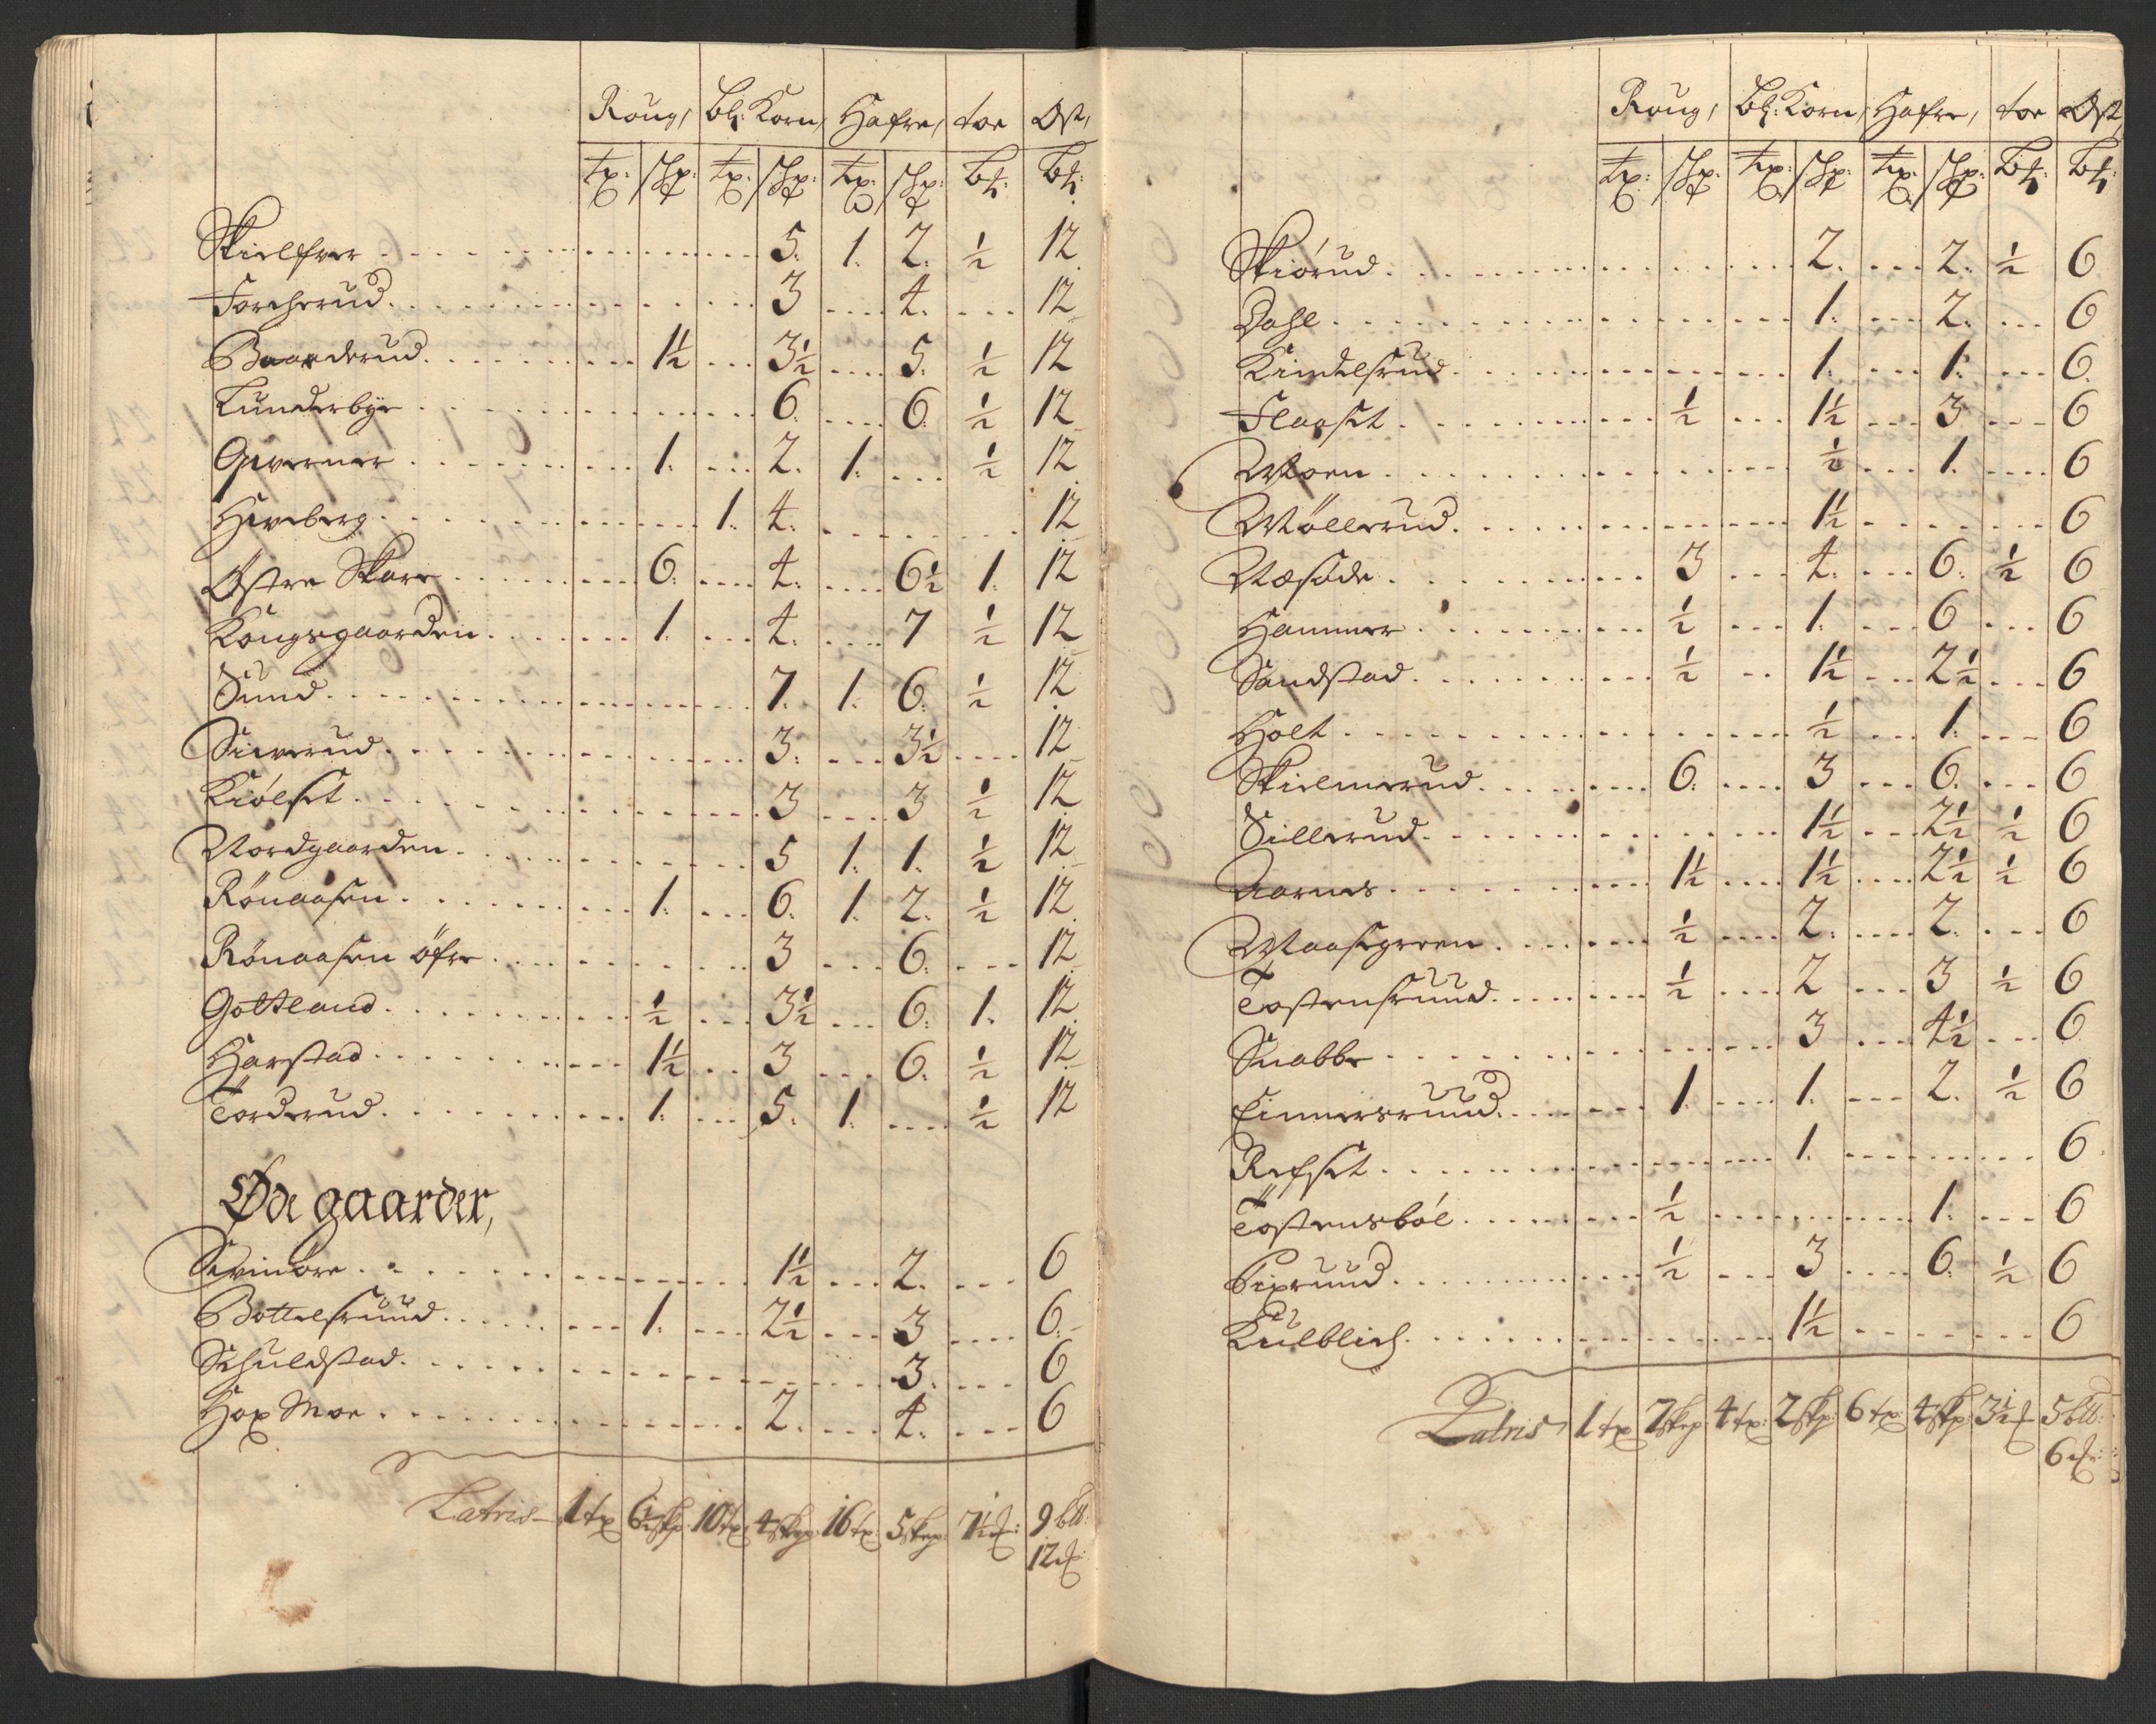 Roug, bl: Korn, Hafre, toe Ost,
tp: skp: tp: skp: tp: skp: bt: bt:
Skielfver 5. 1. 2. ½ 12
Forcherud 3 4. 12
Baarderud 1½ 3½ 5. ½ 12
Lunderbye 6. 6 ½ 12
Gwerner 1. 2. 1. ½ 12
Hweberg 1. 4. 12
Östre Skare 6. 4. 6½ 1. 12
Kongsgaarden 1. 4. 7 ½ 12
Sund 7. 1. 6. ½ 12
Siwerud 3. 3½ 12
Kiölset 3 3 ½ 12
Nordgaarden 5 1. 1. ½ 12
Rönaasen 1. 6. 1. 2. ½ 12
Rönaasen öfre 3 6. 12
Goltland ½ 3½ 6. 1. 12
Harstad 1½ 3 6. ½ 12
Torderud 1. 5. 1. ½ 12
Øde gaarder,
Swindre 1½ 2. 6
Bottelsruud 1. 2½ 3 6.
Schuldstad 3. 6
Hop Moe 2. 4. 6
Latris 1 tp 6½ skp: 10 tp: 4 skp: 16 tp: 5 skp: 7½ 9 bll:
12
Roug, bl: Korn, Hafre, toe Ost,
tp: skp: tp: skp: tp: skp: bt: bt:
Skiörud 2. 2. ½ 6
Dahl 1. 2. 6
Kindelsrud 1. 1. 6
Flaaset ½ 1½ 3 6
Moen ½ 1. 6
Möllerud 1½ 6
Næsöde 3 4. 6. ½ 6
Hammer ½ 1. 6 6
Sandstad ½ 1½ 2½ 6
Holt ½ 1. 6
Skielmerud 6. 3 6. 6
Sillerud 1½ 2½ ½ 6
Aarnes 1½ 1½ 2½ ½ 6
Maasegreen ½ 2. 2. 6
Tostensruud ½ 2 3 ½ 6
Snabbe 3 4½ 6
Einnersruud 1. 1. 2. ½ 6
Refset 1. 6
Tostensböl ½ 1. 6
Pipruud ½ 3 6. ½ 6
Kulblich 1½ 6
Latris 1 tp 7 skp 4 tp: 2 skp: 6 tp: 4 skp 3½ 5 bll:
6